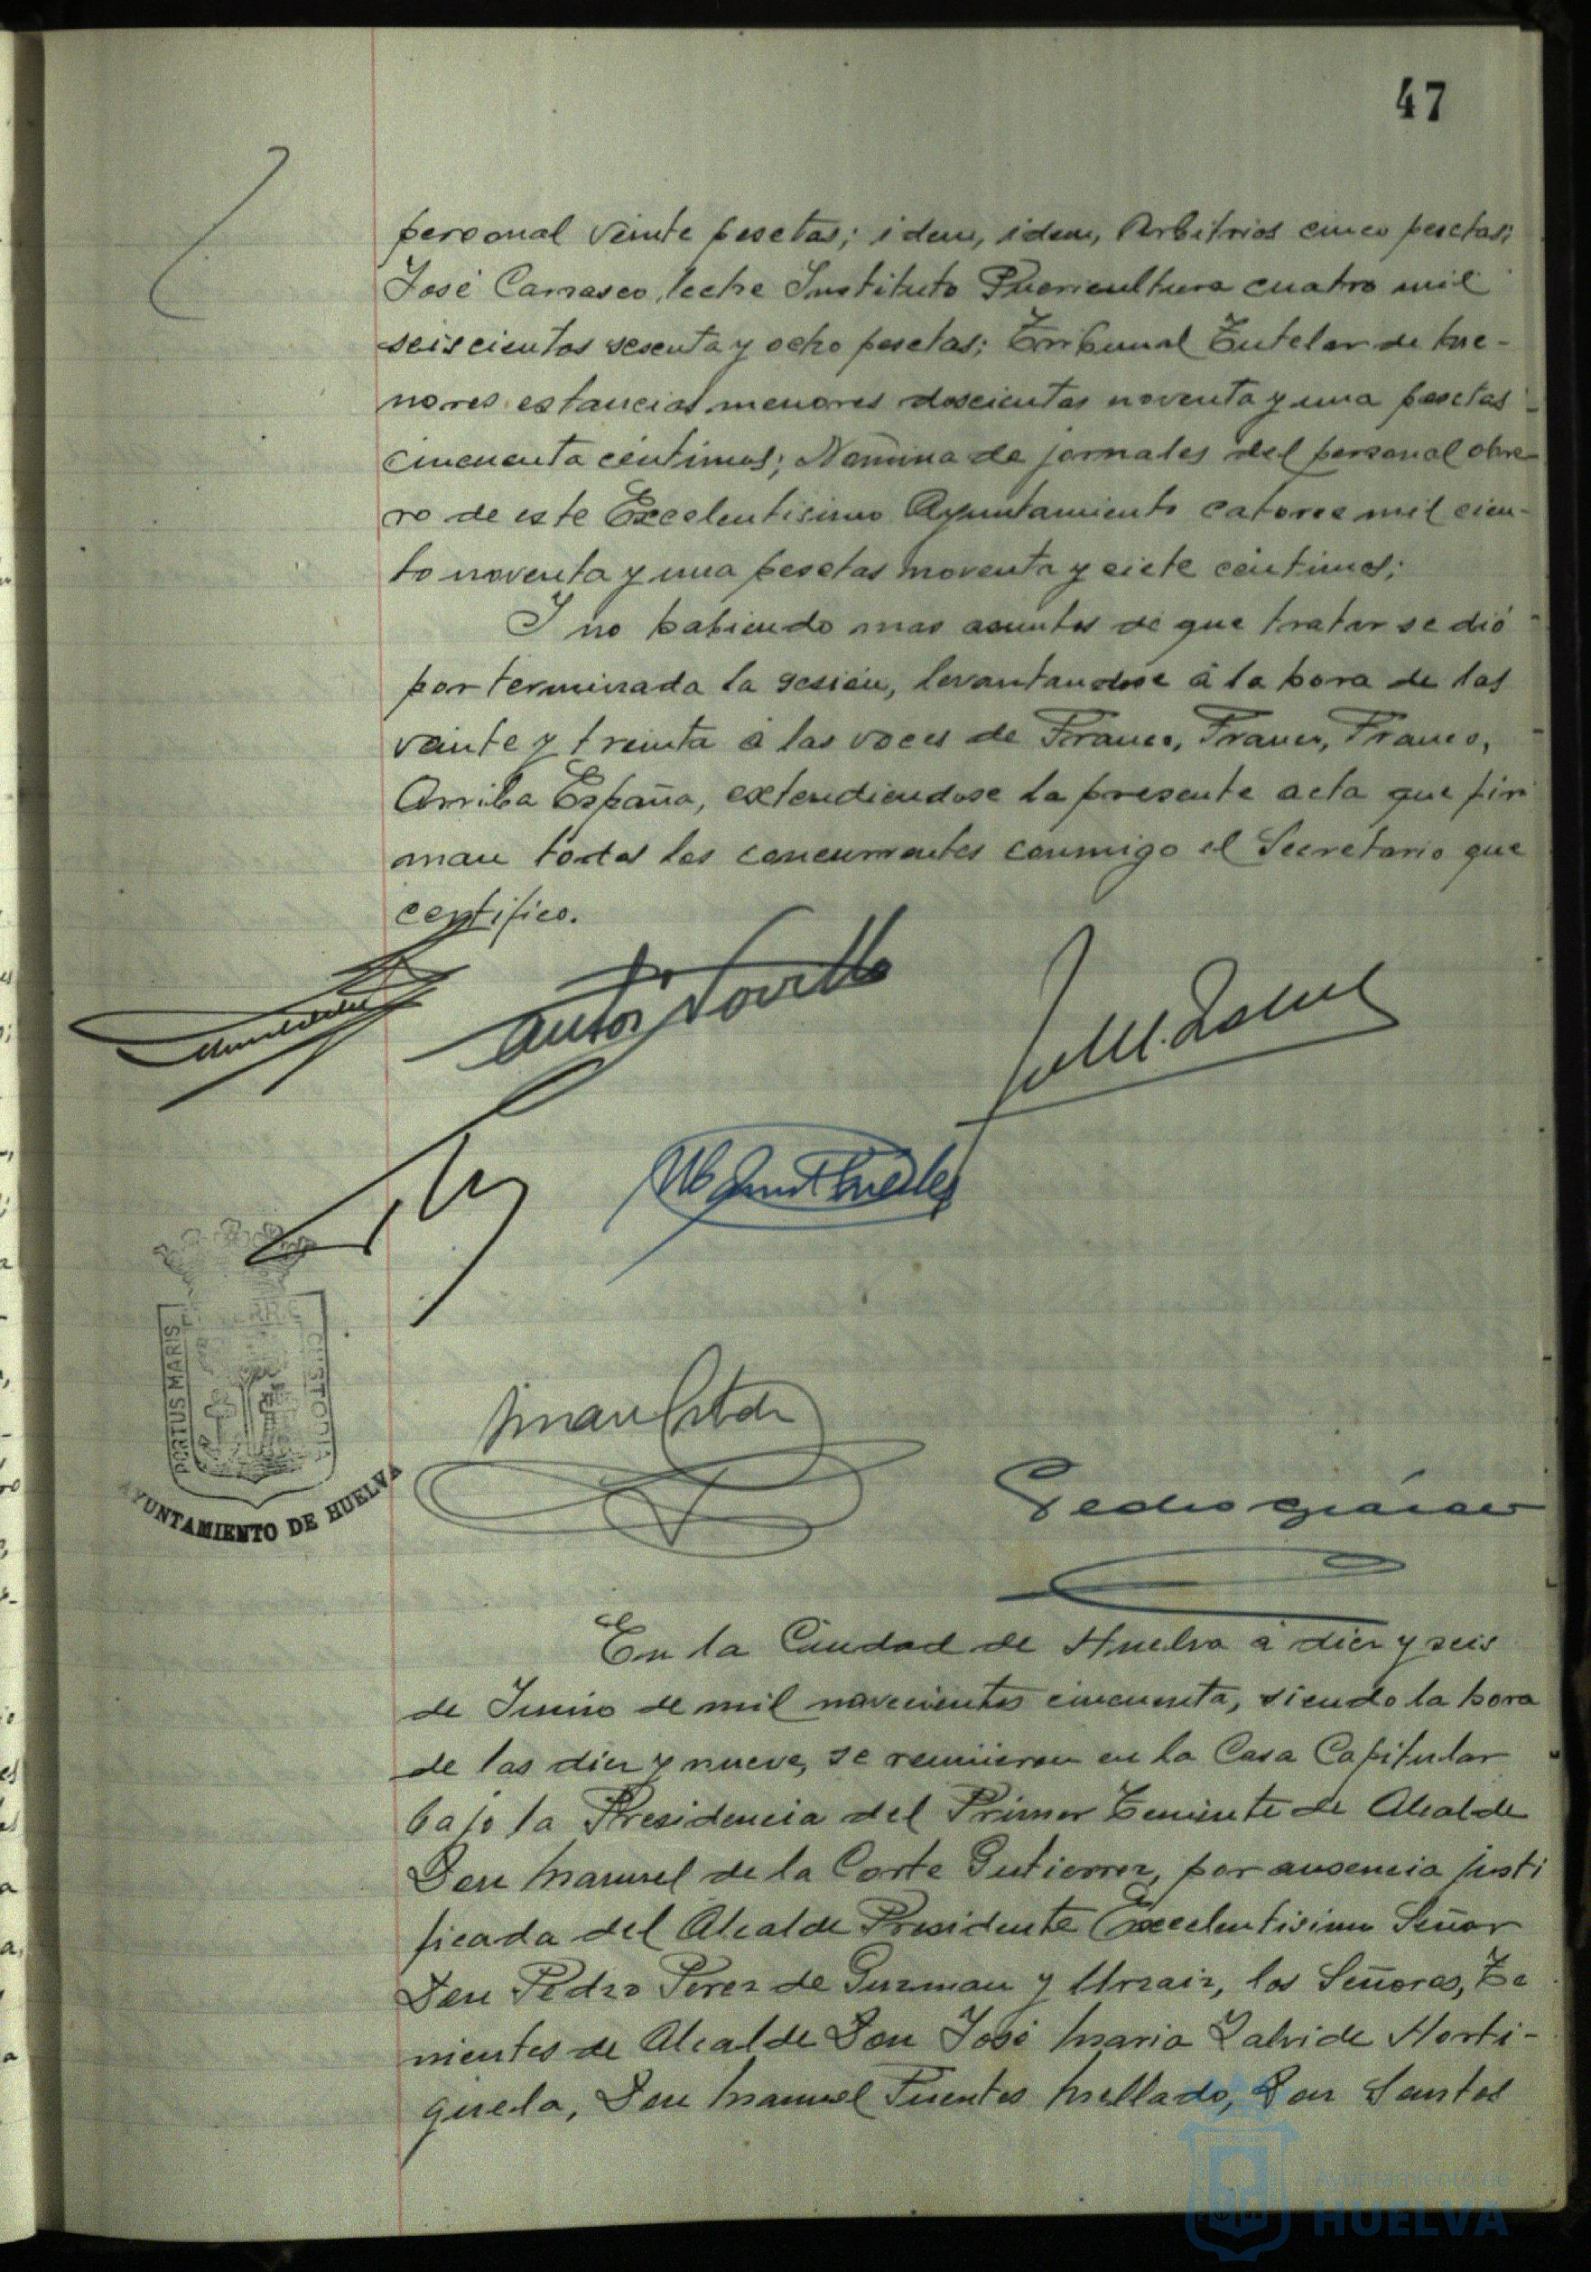 47
personal veinte pesetas; idem, idem, Arbitrios cinco pesetas;
José Carrasco, leche Instituto Puericultura cuatro mil
seiscientas sesenta y ocho pesetas; Tribunal Tutelar de me-
nores estancias menores doscientas noventa y una pesetas
cincuenta céntimos; Nómina de jornales del personal obre-
ro de este Excelentisimo Ayuntamiento catorce mil cien-
to noventa y una pesetas noventa y siete céntimos;
Y no habiendo mas asuntos de que tratar se dió
por terminada la sesión, levantandose á la hora de las
veinte y treinta á las voces de Franco, Franco, Franco,
Arriba España, extendiendose la presente acta que fir
man todos los concurrentes conmigo el Secretario que
certifico.
PORTUS MARIS
CUSTODIA
AYUNTAMIENTO DE HUELVA
Pedro
En la Ciudad de Huelva á diez y seis
de Junio de mil novecientos cincuenta, siendo la hora
de las diez y nueve, se reunieron en la Casa Capitular
bajo la Presidencia del Primer Teniente de Alcalde
Don Manuel de la Corte Gutierrez, por ausencia justi
ficada del Alcalde Presidente Excelentisimo Señor
Don Pedro Perez de Guzman y Urzaiz, los Señores, Te
nientes de Alcalde Don José Maria Zalvide Horti-
güela, Don Manuel Fuentes Mellado, Don Santos
Ayuntamiento de
HUELVA